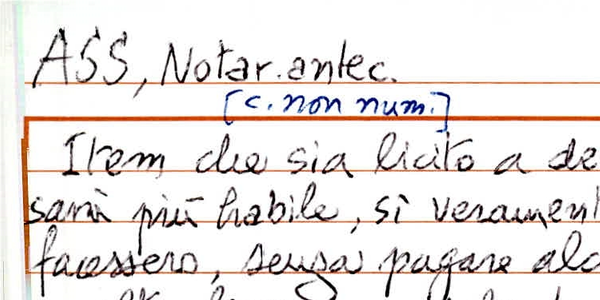 ASS, Notar. antec.
[c. non num.]
Item che sia licito a de
sarà più habile, si veramen
facessero, senza pagare alc